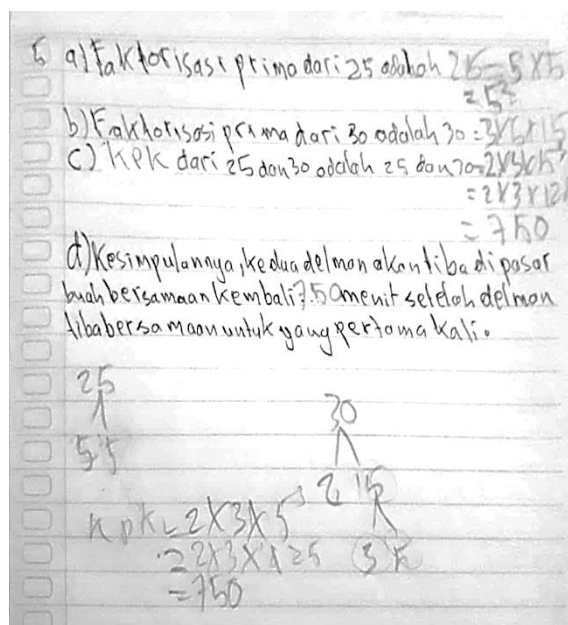 5 a) Faktorisasi prima dari 25 adalah 25 = 5 x 5
= 5²
b) Faktorisasi prima dari 30 adalah 30 =
c) KPK dari 25 dan 30 adalah 25 dan 30 = 2x3x5³
= 2 x 3 x 12
= 750
d) Kesimpulannya, kedua delman akan tiba di pasar
buah bersamaan kembali 750 menit setelah delman
tiba bersamaan untuk yang pertama kali.
25
30
5 5
2 15
KpK = 2 x 3 x 5³
= 2 x 3 x 125
3 5
= 750